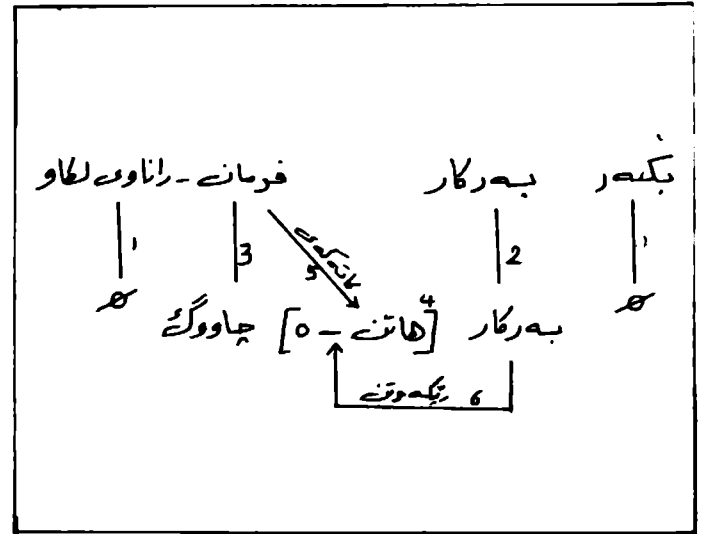 بکەر بەرکار فرمان - راناوی لکاو
1 2 3 1
کاتەکەی
5
∅ بەرکار [هاتن - ە] چاووگ ∅
4
6 ڕێکەوتن